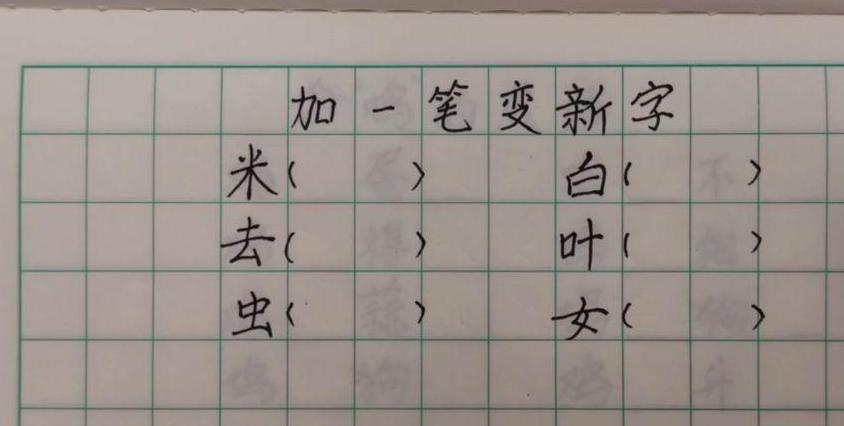 加一笔变新字
米（ ） 白（ ）
去（ ） 叶（ ）
虫（ ） 女（ ）